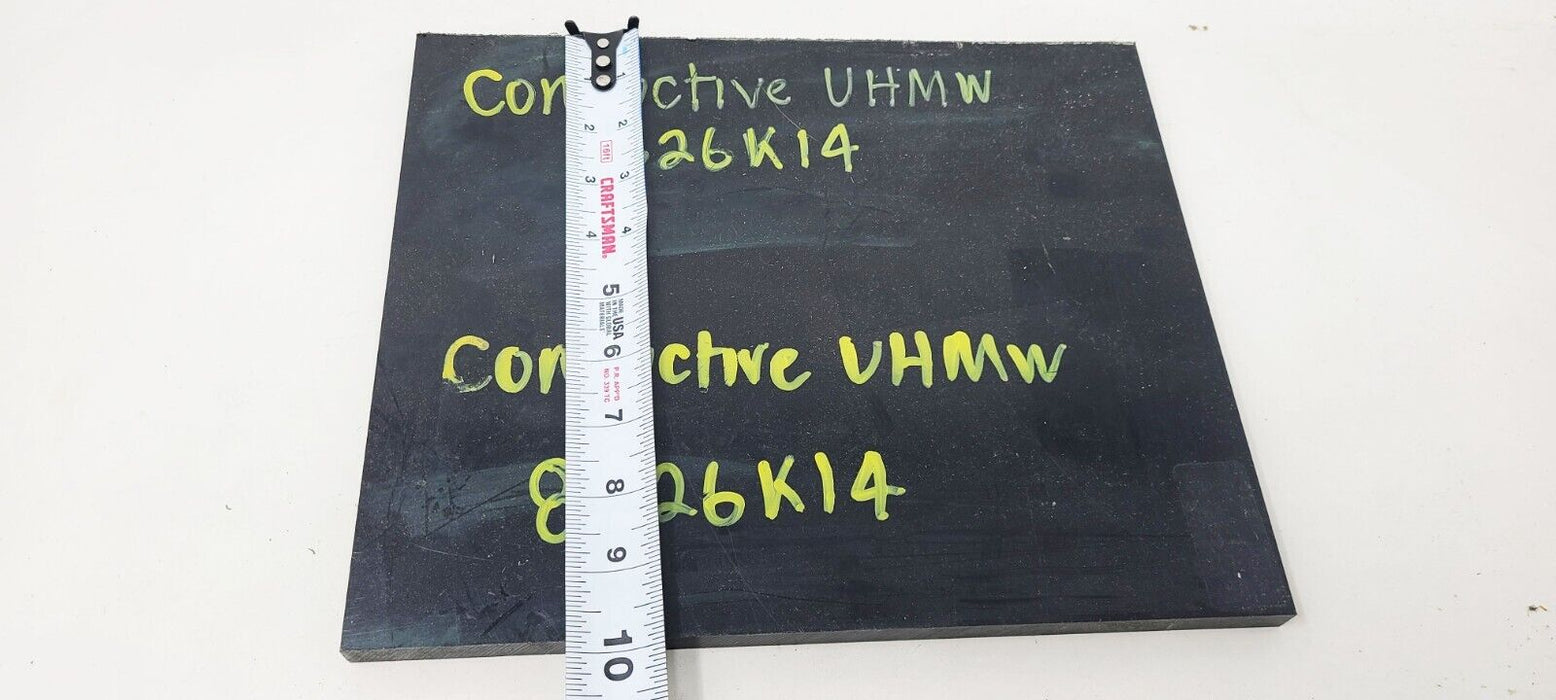 Con ctive UHMW
26K14
1
2 2
16ft
3 3
CRAFTSMAN
4 4
5
MADE IN THE USA WITH GLOBAL MATERIALS
6
P.R. APP'D NO. 339 TC
7
Con ctive UHMW
8
8 26K14
9
10